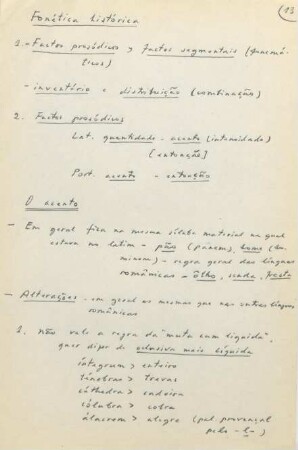 13
Fonética histórica
1. - Factos prosódicos > factos segmentais (fonemá-
ticos)
- inventário e distribuição (combinação)
2. Factos prosódicos
Lat. quantidade - acento (intensidade)
[entoação]
Port. acento - entoação
O acento
- Em geral fixa na mesma sílaba material na qual
estava no latim - pão (panem), homem (ho-
minem) - regra geral das línguas
românicas -
- Alterações - em geral as mesmas que nas outras línguas
românicas
1. não vale a regra da "muta cum liquida",
quer dizer de oclusiva mais líquida
íntegrum > enteiro
ténebras > trevas
cáthedra > cadeira
cólubra > cobra
álacrem > alegre (pel provençal
pelo -l-)